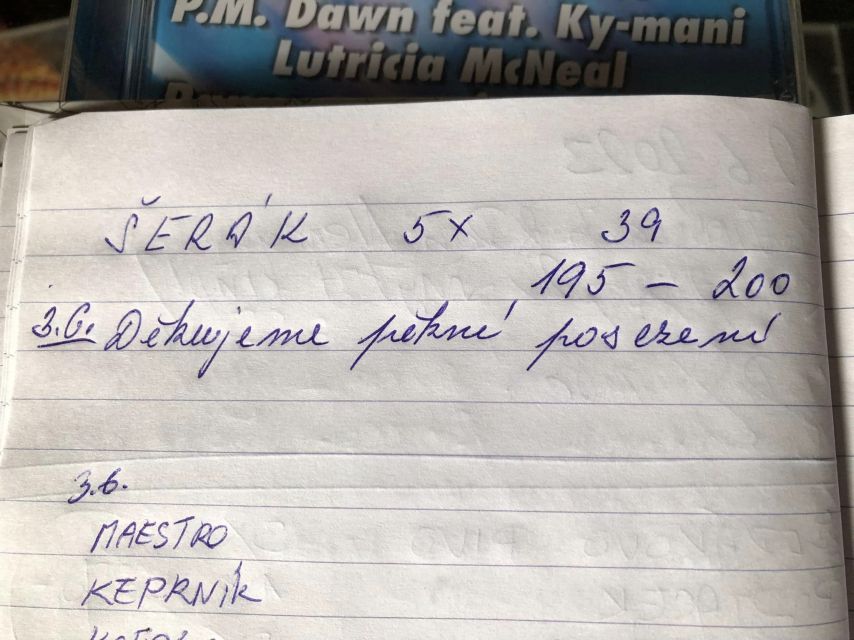 P.M. Dawn feat. Ky-mani
Lutricia McNeal
ŠERÁK 5x 39
195 – 200
3.6. Děkujeme pěkné posezení
3.6.
MAESTRO
KEPRNÍK